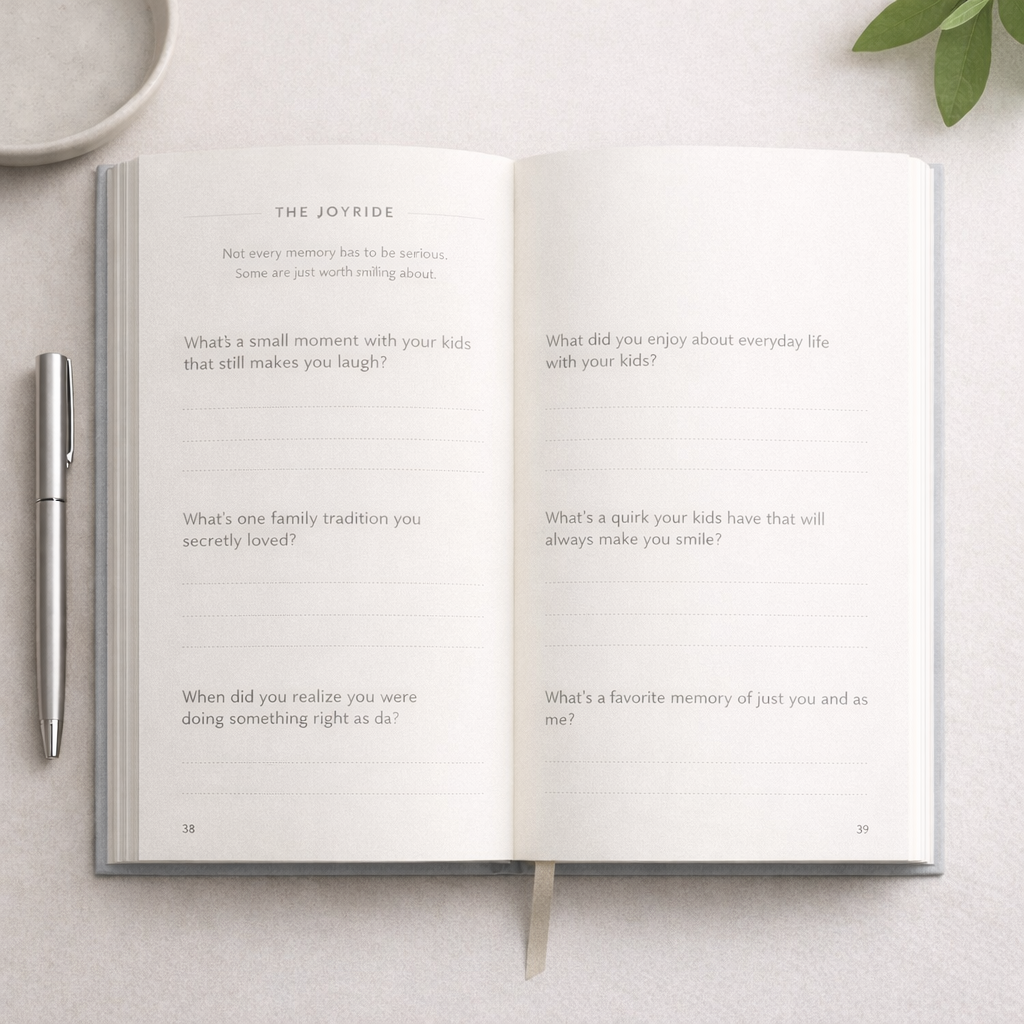 THE JOYRIDE
Not every memory has to be serious.
Some are just worth smiling about.
What's a small moment with your kids
that still makes you laugh?
What's one family tradition you
secretly loved?
When did you realize you were
doing something right as da?
38
What did you enjoy about everyday life
with your kids?
What's a quirk your kids have that will
always make you smile?
What's a favorite memory of just you and as
me?
39